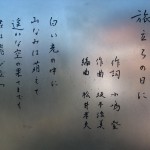 旅立ちの日に
作詞 小嶋登
作曲 坂本浩美
編曲 松井孝夫
白い光の中に
山なみは萌えて
遥かな空の果てまでも